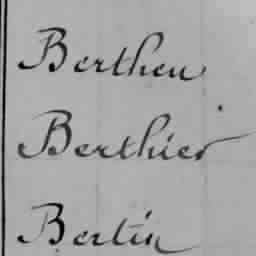 Bertheu
Berthier
Bertin